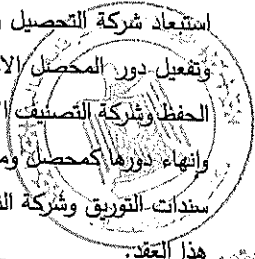 استبعاد شركة التحصيل
وتفعيل دور المحصل
الحفظ وشركة التصنيف
وإنهاء دورها كمحصل
سندات التوريق وشركة
هذا العقد.